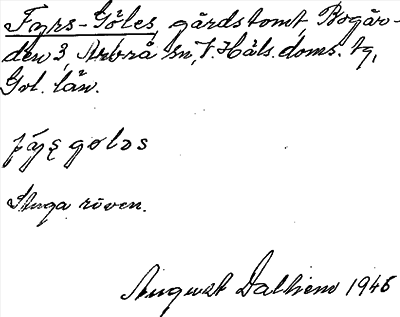 Fyrs-Göles, gårdstomt, Bogår-
den 3, Arbrå sn, V. Häls. doms. tg,
Gvl. län.
fʏ̄ʂ gøləs
Stuga röven.
August Dalhem 1946